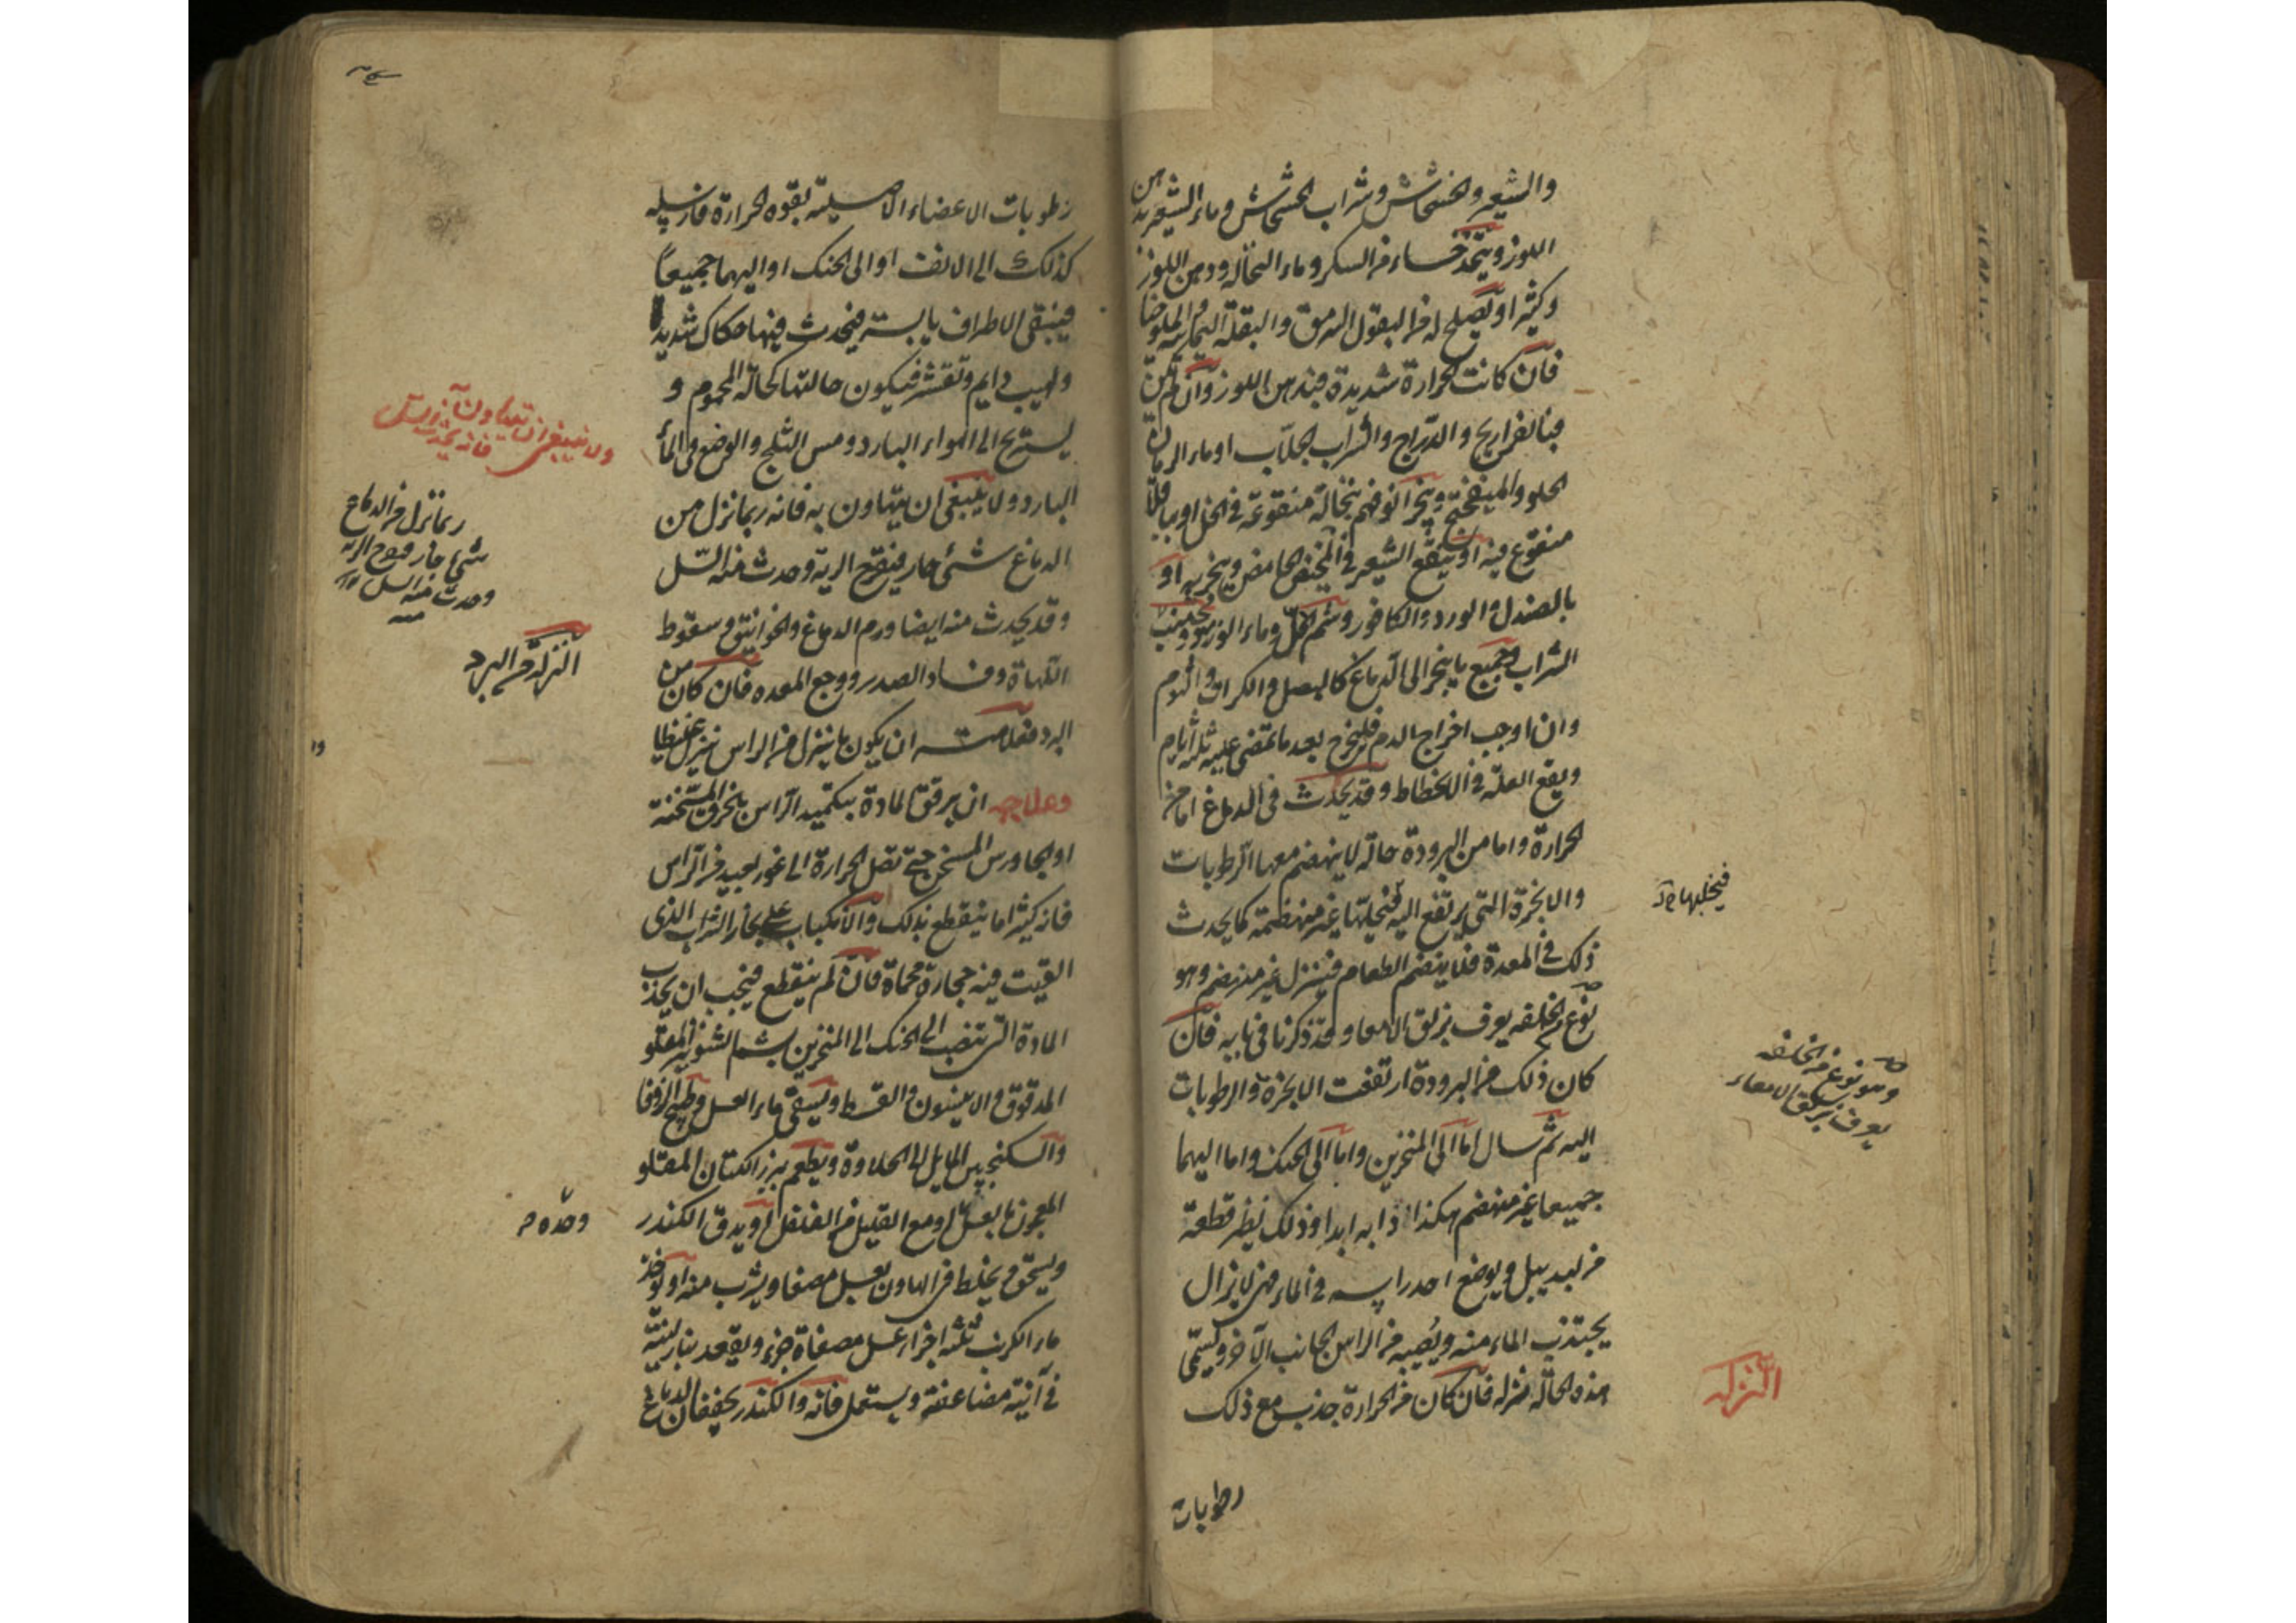 والشعير والخشخاش وشراب الخشخاش وماء الشعير بدهن
اللوز ويتخذ حساء من السكر وماء النخالة ودهن اللوز
وكثيرا ويصلح له من البقول السرمق والبقلة اليمانية والملوخيا
فان كانت الحرارة شديدة فبدهن اللوز وان لم تكن
فبالفراريج والدراج والشراب الجلاب او ماء الرمان
الحلو والميفختج ويبخر انوفهم بنخالة منقوعة في الخل او بباقلا
منقوع فيه او ينقع الشعير في المخيض الحامض ويبخر به او
بالصندل والورد والكافور وشم الخل وماء الورد ويجتنب
الشراب وجميع ما يبخر الى الدماغ كالبصل والكراث والثوم
وان اوجب اخراج الدم فليخرج بعد ما تمضى عليه ثلثة ايام
ويقع العلة في الانحطاط وقد يحدث في الدماغ اما من
الحرارة واما من البرودة حالة لا ينهضم معها الرطوبات
والابخرة التي يرتفع اليه فيحلبها غير منهضمة كما يحدث
ذلك في المعدة فلا ينهضم الطعام فينزل غير منهضم وهو
نوع من الخلفه يعرف بزلق الامعا وقد ذكرنا في بابه فان
كان ذلك من البرودة ارتفعت الابخرة والرطوبات
اليه ثم سال اما الى المنخرين واما الى الحنك واما اليهما
جميعا غير منهضم هكذا دابه ابدا وذلك نظير قطعة
من لبد يبل ويوضع احد راسيه في الماء فهى لا يزال
يجتذب الماء منه ويصبه من الراس الجانب الآخر ويسمى
هذه الحالة نزله فان كان من الحرارة جذب مع ذلك
رطوبات
فيحلبها
وهو نوع من الخلفه
يعرف بزلق الامعاء
النزله
رطوبات الاعضاء الاصلية بقوه الحرارة فارسله
كذلك الى الانف او الى الحنك او اليهما جميعاً
فيبقى الاطراف يابسة فيحدث فيها حكاك شديد
ولهيب دايم وتقشر فيكون حالتها كحالة المحموم و
يستريح الى الهواء البارد ومس الثلج والوضع فى الماء
البارد ولا ينبغى ان يتهاون به فانه ربما نزل من
الدماغ شئ حار فيقرح الرية وحدث منه السل
وقد يحدث منه ايضا ورم الدماغ والخوانيق وسقوط
اللهاة وفساد الصدر ووجع المعده فان كان من
البرد فعلامته ان يكون ما ينزل من الراس ينزل غليظا
وعلاجه ان يرقق المادة بتكميد الراس بالخرق المسخنة
او الجاورس المسخن حتى تصل الحرارة الى غور بعيد من الراس
فانه كثيرا ما ينقطع بذلك والانكباب على بخار الشراب الذى
القيت فيه حجارة محماة فان لم ينقطع فيجب ان يجذب
المادة التى تنصب الى الحنك الى المنخرين بشم الشونيز المقلو
المدقوق والانيسون والقسط ويسقى ماء العسل وطبيخ الزوفا
والسكنجبين المايل الى الحلاوة ويطعم بزر الكتان المقلو
المعجون بالعسل او مع القليل من الفلفل او يدق الكندر
ويسحق ويخلط فى الهاون بعسل مصفا ويشرب منه او يوخذ
ماء الكرنب ثلثه اجزاء عسل مصفاة جزء ويعقد بنار لينة
في آنية مضاعفة ويستعمل فانه والكندر يجففان الدماغ
ولا ينبغى ان يتهاون
ربما نزل من الدماغ
شئ حار فيقرح الرية
وحدث منه السل
منه
النزلة من البرد
وحده